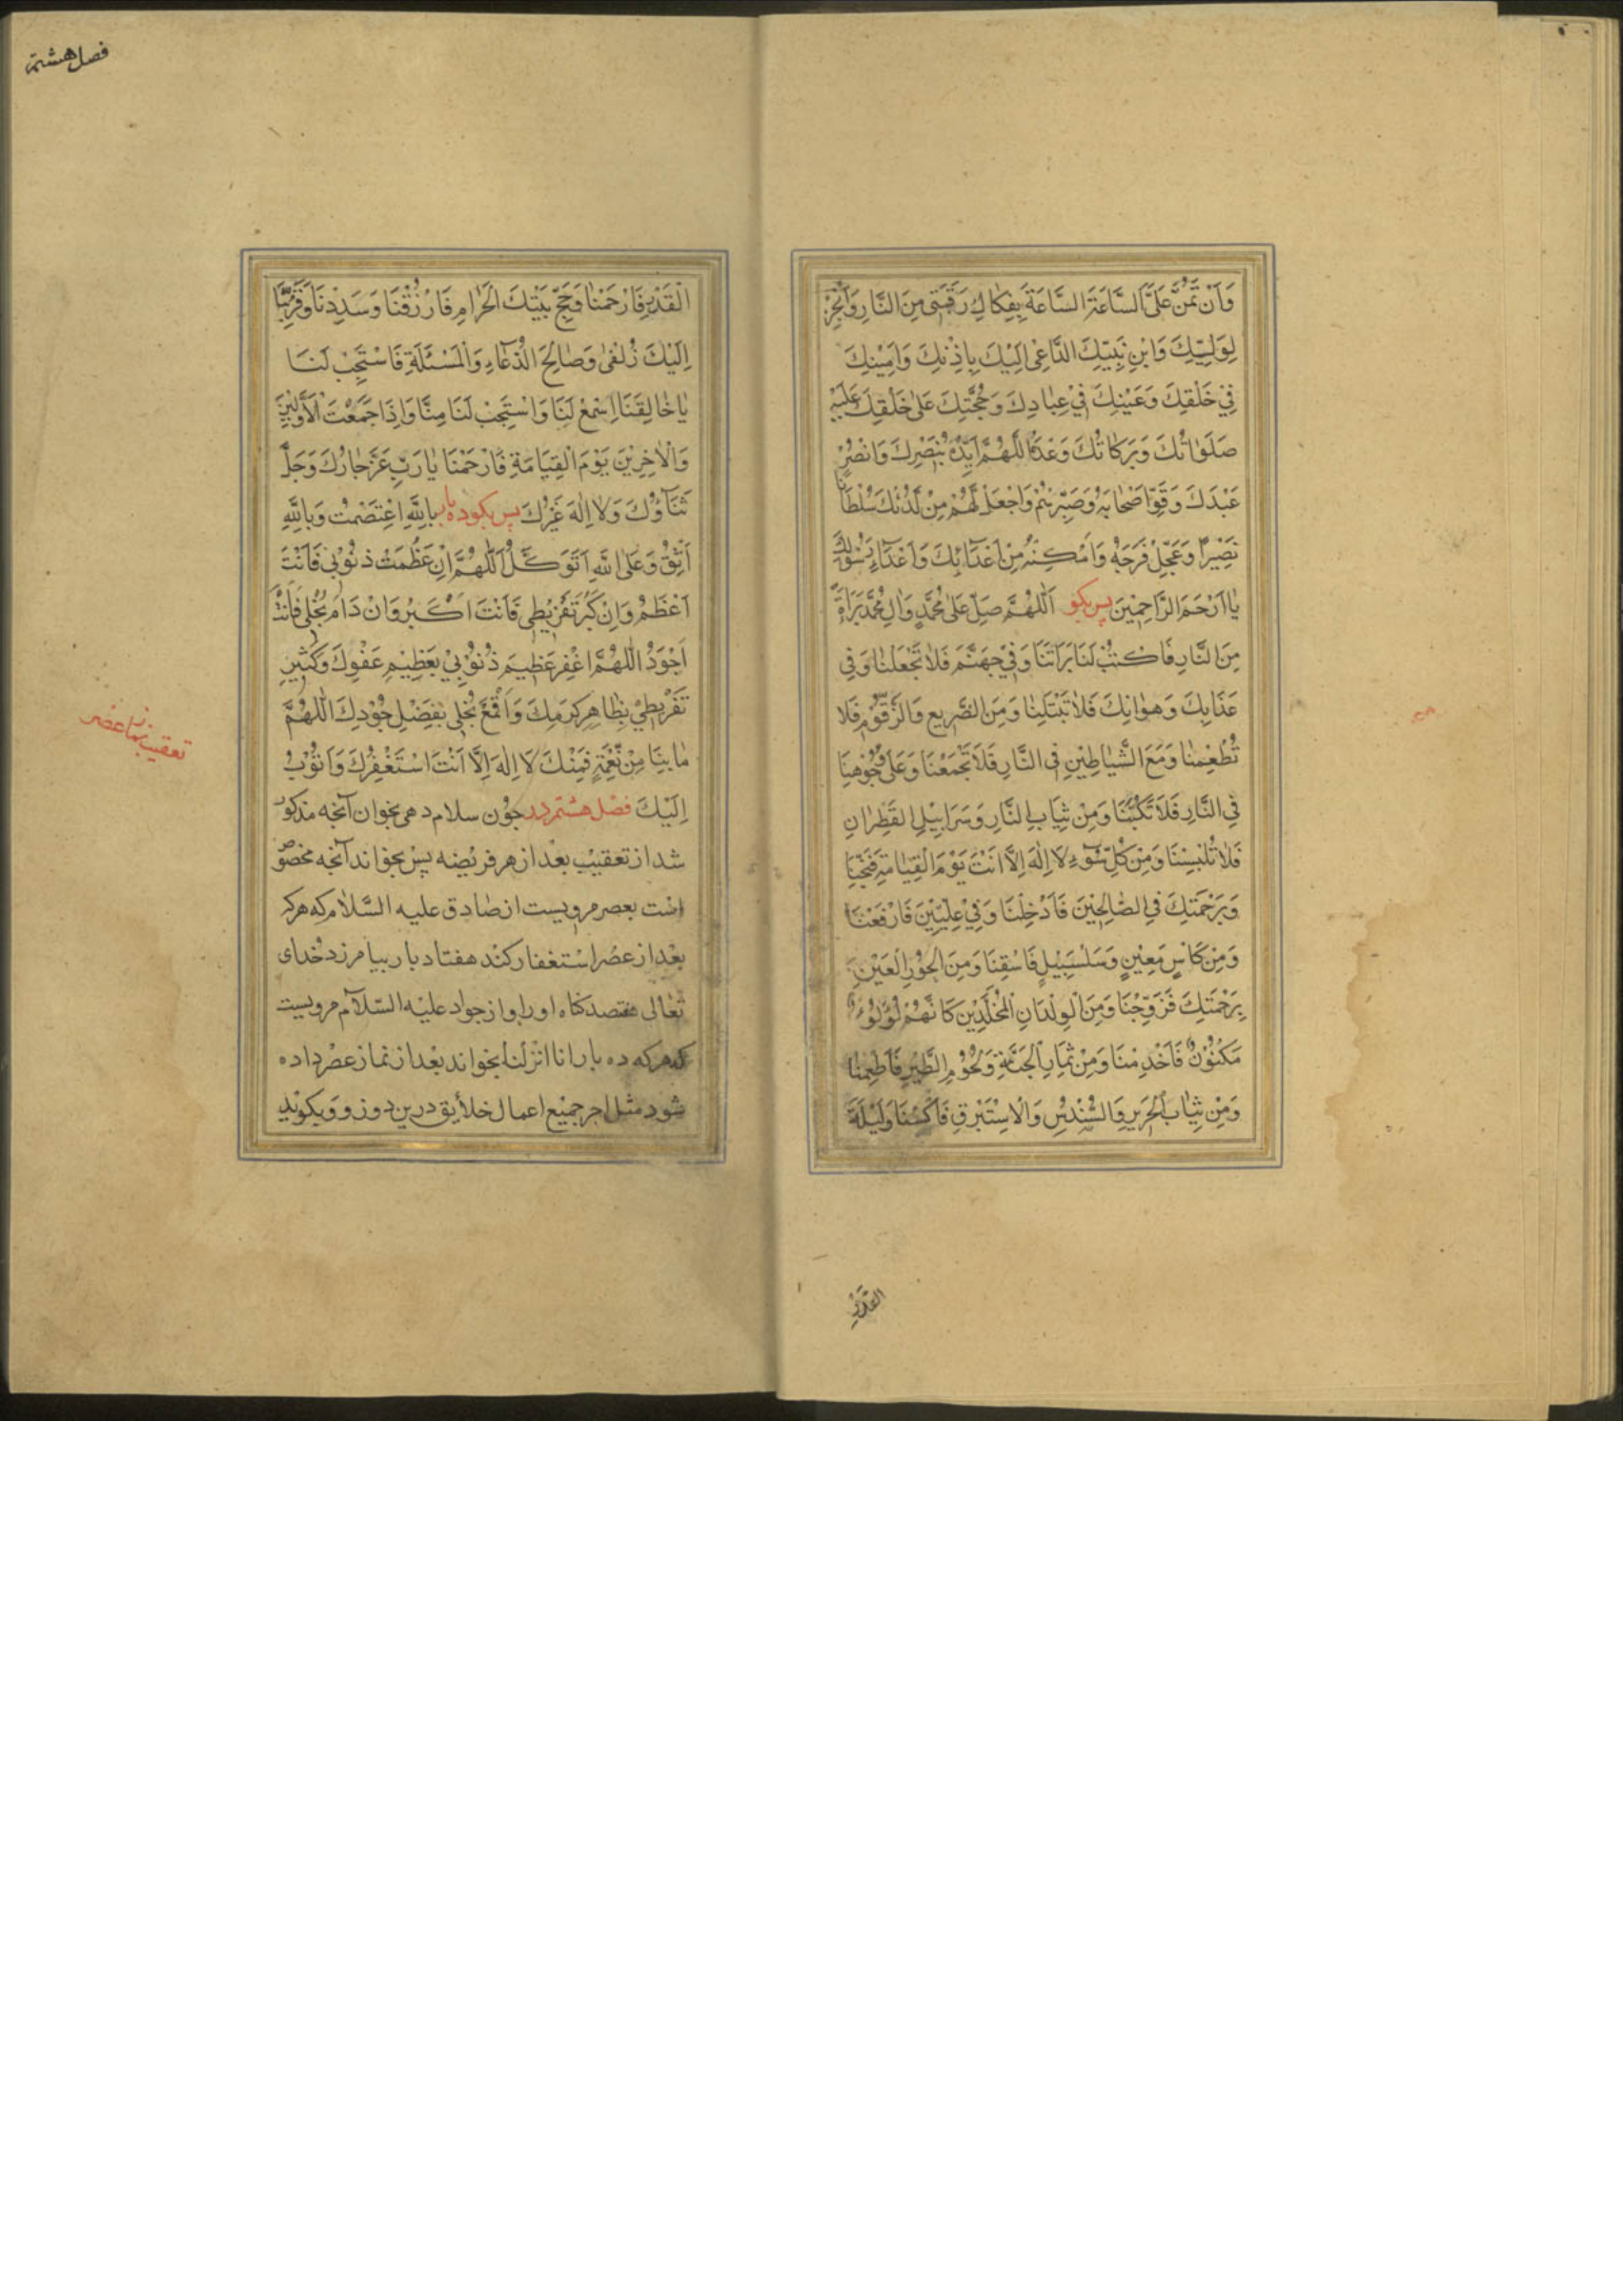 وَاَنْ تَمُنَّ عَلَىَّ السَّاعَةَ السَّاعَةَ بِفِكَاكِ رَقَبَتِى مِنَ النَّارِ وَاَنْجِزْ
لِوَلِيِّكَ وَابْنِ نَبِيِّكَ الدَّاعِى اِلَيْكَ بِاِذْنِكَ وَاَمِيْنِكَ
فِىْ خَلْقِكَ وَعَيْنِكَ فِىْ عِبَادِكَ وَحُجَّتِكَ عَلىٰ خَلْقِكَ عَلَيْهِ
صَلَوَاتُكَ وَبَرَكَاتُكَ وَعْدَهُ اَللّٰهُمَّ اَيِّدْهُ بِنَصْرِكَ وَانْصُرْ
عَبْدَكَ وَقَوِّ اَصْحَابَهُ وَصَبِّرْهُمْ وَاجْعَلْ لَهُمْ مِنْ لَدُنْكَ سُلْطَانًا
نَصِيْرًا وَعَجِّلْ فَرَجَهُ وَاَمْكِنْهُ مِنْ اَعْدَائِكَ وَاَعْدَاءِ رَسُوْلِكَ
يَا اَرْحَمَ الرَّاحِمِيْنَ پس بكو اَللّٰهُمَّ صَلِّ عَلىٰ مُحَمَّدٍ وَاٰلِ مُحَمَّدٍ بَرَاةً
مِنَ النَّارِ فَاكْتُبْ لَنَا بَرَاتَنَا وَفِىْ جَهَنَّمَ فَلَا تَجْعَلْنَا وَفِى
عَذَابِكَ وَهَوَانِكَ فَلَا تَبْتَلِيْنَا وَمِنَ الضَّرِيعِ وَالزَّقُّوْمِ فَلَا
تُطْعِمْنَا وَمَعَ الشَّيَاطِيْنِ فِى النَّارِ فَلَا تَجْمَعْنَا وَعَلىٰ وُجُوْهِنَا
فِى النَّارِ فَلَا تَكْبُبْنَا وَمِنْ ثِيَابِ النَّارِ وَسَرَابِيْلِ القَطِرَانِ
فَلَا تُلْبِسْنَا وَمِنْ كُلِّ سُوْءٍ لَا اِلٰهَ اِلَّا اَنْتَ يَوْمَ الْقِيَامَةِ فَنَجِّنَا
وَبِرَحْمَتِكَ فِى الصَّالِحِيْنَ فَاَدْخِلْنَا وَفِىْ عِلِّيِّيْنَ فَارْفَعْنَا
وَمِنْ كَاْسٍ مَعِيْنٍ وَسَلْسَبِيْلٍ فَاسْقِنَا وَمِنَ الْحُوْرِ الْعَيْنِ
بِرَحْمَتِكَ فَزَوِّجْنَا وَمِنَ الْوِلْدَانِ الْمُخَلَّدِيْنَ كَاَنَّهُمْ لُؤْلُؤٌ
مَكْنُوْنٌ فَاَخْدِمْنَا وَمِنْ ثِمَارِ الْجَنَّةِ وَلُحُوْمِ الطَّيْرِ فَاَطْعِمْنَا
وَمِنْ ثِيَابِ الْحَرِيْرِ وَالسُّنْدُسِ وَالْاِسْتَبْرَقِ فَاكْسُنَا وَلَيْلَةَ
القدر
فصل هشتم
الْقَدْرِ فَارْحَمْنَا وَحَجَّ بَيْتِكَ الْحَرَامِ فَارْزُقْنَا وَسَدِّدْنَا وَقَرِّبْنَا
اِلَيْكَ زُلْفىٰ وَصَالِحَ الدُّعَاءِ وَالْمَسْئَلَةِ فَاسْتَجِبْ لَنَا
يَا خَالِقَنَا اِسْمَعْ لَنَا وَاسْتَجِبْ لَنَا مِنَّا وَاِذَا جَمَعْتَ الْاَوَّلِيْنَ
وَالْاٰخِرِيْنَ يَوْمَ الْقِيَامَةِ فَارْحَمْنَا يَا رَبِّ عَزَّ جَارُكَ وَجَلَّ
ثَنَاؤُكَ وَلَا اِلٰهَ غَيْرُكَ پس بكو ده بار بِاللّٰهِ اعْتَصَمْتُ وَبِاللّٰهِ
اَثِقُ وَعَلَى اللّٰهِ اَتَوَكَّلُ اَللّٰهُمَّ اِنْ عَظُمَتْ ذُنُوْبِىْ فَاَنْتَ
اَعْظَمُ وَاِنْ كَبُرَ تَفْرِيْطِى فَاَنْتَ اَكْبَرُ وَاِنْ دَامَ بُخْلِى فَاَنْتَ
اَجْوَدُ اَللّٰهُمَّ اغْفِرْ عَظِيْمَ ذُنُوْبِىْ بِعَظِيْمِ عَفْوِكَ وَكَثِيْرَ
تَفْرِيْطِىْ بِظَاهِرِ كَرَمِكَ وَاقْمَعْ بُخْلِى بِفَضْلِ جُوْدِكَ اَللّٰهُمَّ
مَا بِنَا مِنْ نِعْمَةٍ فَمِنْكَ لَا اِلٰهَ اِلَّا اَنْتَ اَسْتَغْفِرُكَ وَاَتُوْبُ
اِلَيْكَ فصل هشتم در چون سلام دهى بخوان آنچه مذكور
شد از تعقيب بعد از هر فريضه پس بخواند آنچه مخصوص
است بعصر مرويست از صادق عليه السّلام كه هركه
بعد از عصر استغفار كند هفتاد بار بيامرزد خداى
تعالى هفتصد كناه او را و از جواد عليه السّلام مرويست
كه هركه ده بار انا انزلنا بخواند بعد از نماز عصر داده
شود مثل اجر جميع اعمال خلايق درين روز و بكويد
تعقيب نماز عصر